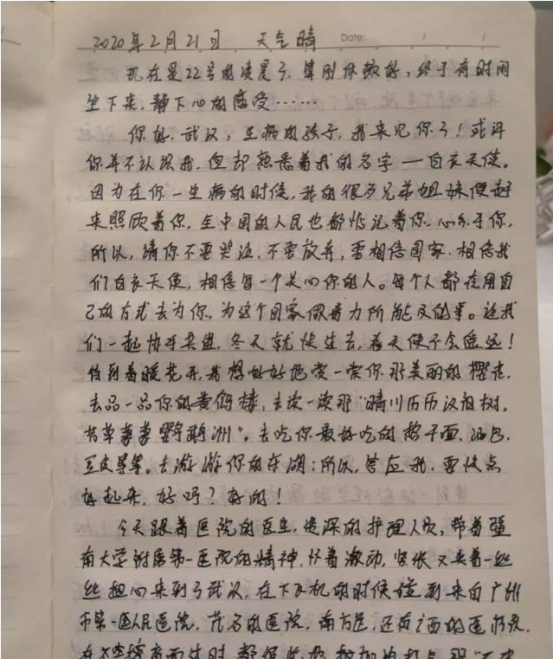 2020年2月21日 天气晴 Date: / /
现在是22号的凌晨了,算刚休歇好,终于有时间
坐下来,静下心的感受……
你好,武汉,生病的孩子,我来见你了!或许
你并不认识我,但却熟悉着我的名字——白衣天使。
因为在你一生病的时候,我的很多兄弟姐妹便赶
来照顾着你,全中国的人民也都惦记着你,心系于你,
所以,请你不要哭泣,不要放弃,要相信国家,相信我
们白衣天使,相信每一个关心你的人。每个人都在用自
己的方式去为你,为这个国家做着力所能及的事。让我
们一起携手共进,冬天就快过去,春天便不会遥远!
待到春暖花开,我想好好地赏一赏你那美丽的樱花,
去品一品你的黄鹤楼,去读一读那"晴川历历汉阳树,
芳草萋萋鹦鹉洲"。去吃你最好吃的热干面、汤包、
豆皮等等。去游游你的东湖;所以,答应我,要快点
好起来,好吗?好的!
今天跟着医院的医生,资深的护理人员,带着暨
南大学附属第一医院的精神,怀着激动,紧张又夹着一丝
丝担心来到了武汉,在下飞机的时候碰到来自广州
市第一人民医院,茂名的医院,南方医,还有广西的医疗队,